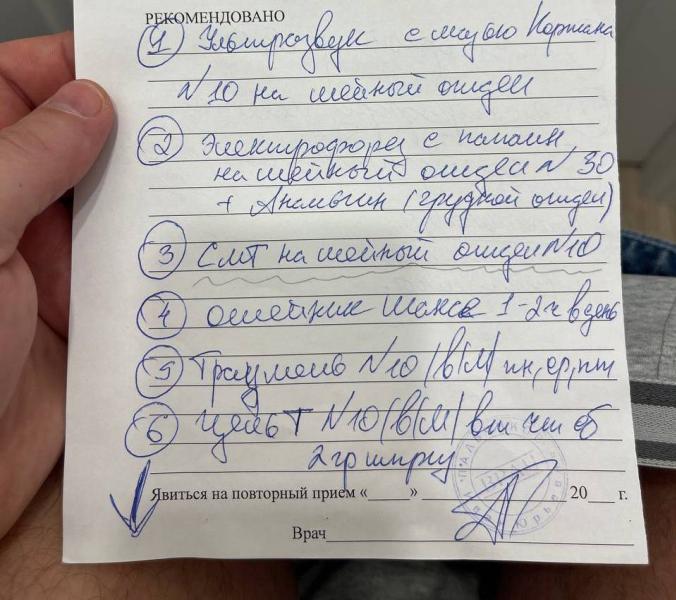 РЕКОМЕНДОВАНО
1 Ультразвук с мазью Коржана
N 10 на шейный отдел
2 Электрофорез с папаин
на шейный отдел N 30
+ Анальгин (грудной отдел)
3 СМТ на шейный отдел N10
4 Ошейник Шанса 1-2ч в день
5 Траумель N10 (в/м) пн, ср, пт
6 Цель Т N10 (в/м) вт чт сб
Явиться на повторный прием «____» 20___ г.
Врач